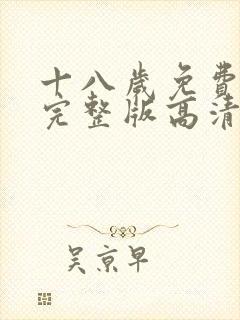 十八岁免费
完整版高清
吴京早